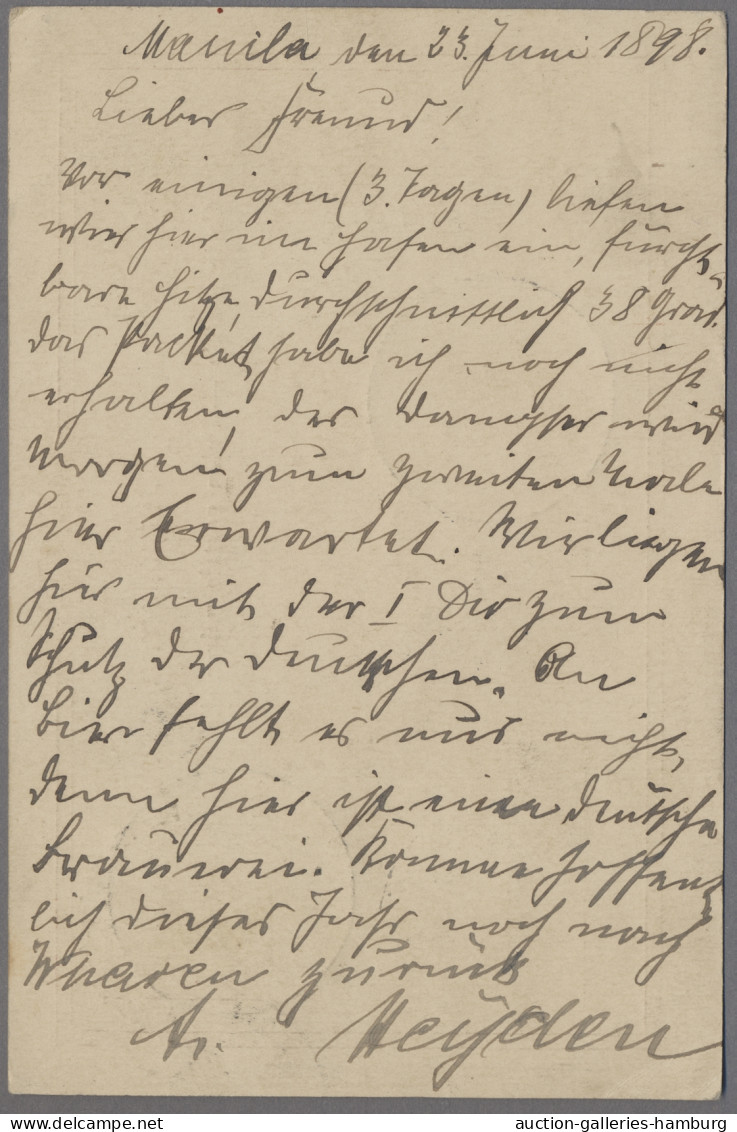 Manila, den 23. Juni 1898.
Lieber Freund!
Vor einigen (3. Tagen) liefen
wir hier im Hafen ein, furcht-
bare Hitze, durchschnittlich 38 Grad.
das Packet habe ich noch nicht
erhalten, der Dampfer wird
Morgen zum zweiten Male
hier Erwartet. Wir liegen
hier mit der I Div zum
Schutz der deutschen. An
Bier fehlt es uns nicht,
denn hier ist eine deutsche
Brauerei. Komme hoffent-
lich dieses Jahr noch nach
Whaven zurück
A. Heyden
auction-galleries-hamburg